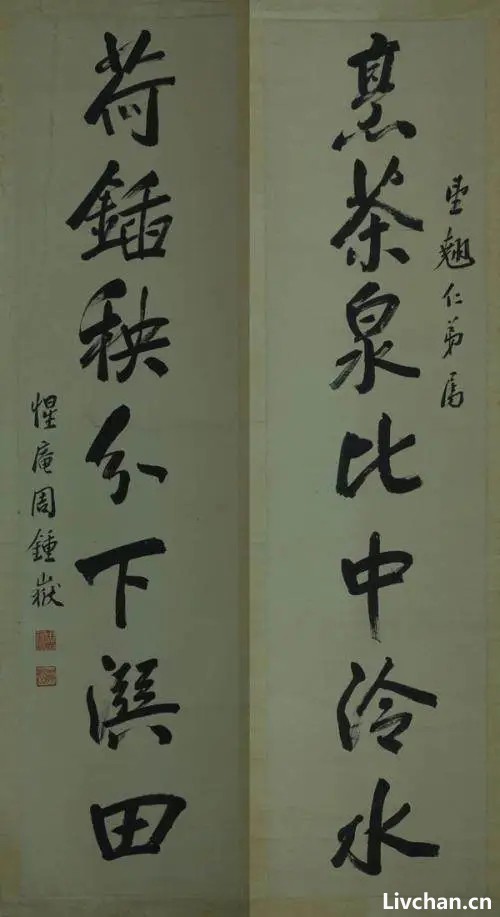 烹茶泉比中泠水
翹仁弟属
荷鍤秧分下潠田
惺庵周鍾嶽
Livchan.cn